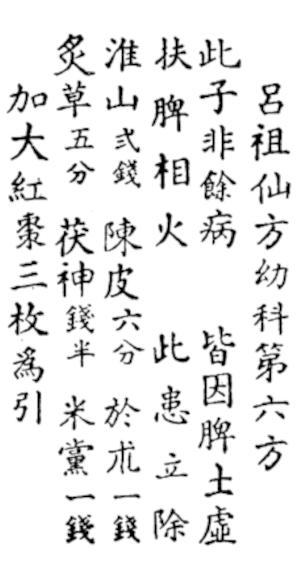 呂祖仙方幼科第六方
此子非餘病　皆因脾土虛
扶脾相火　此患立除
淮山弍錢　陳皮六分　於朮一錢
炙草五分　茯神錢半　米黨一錢
加大紅棗三枚為引